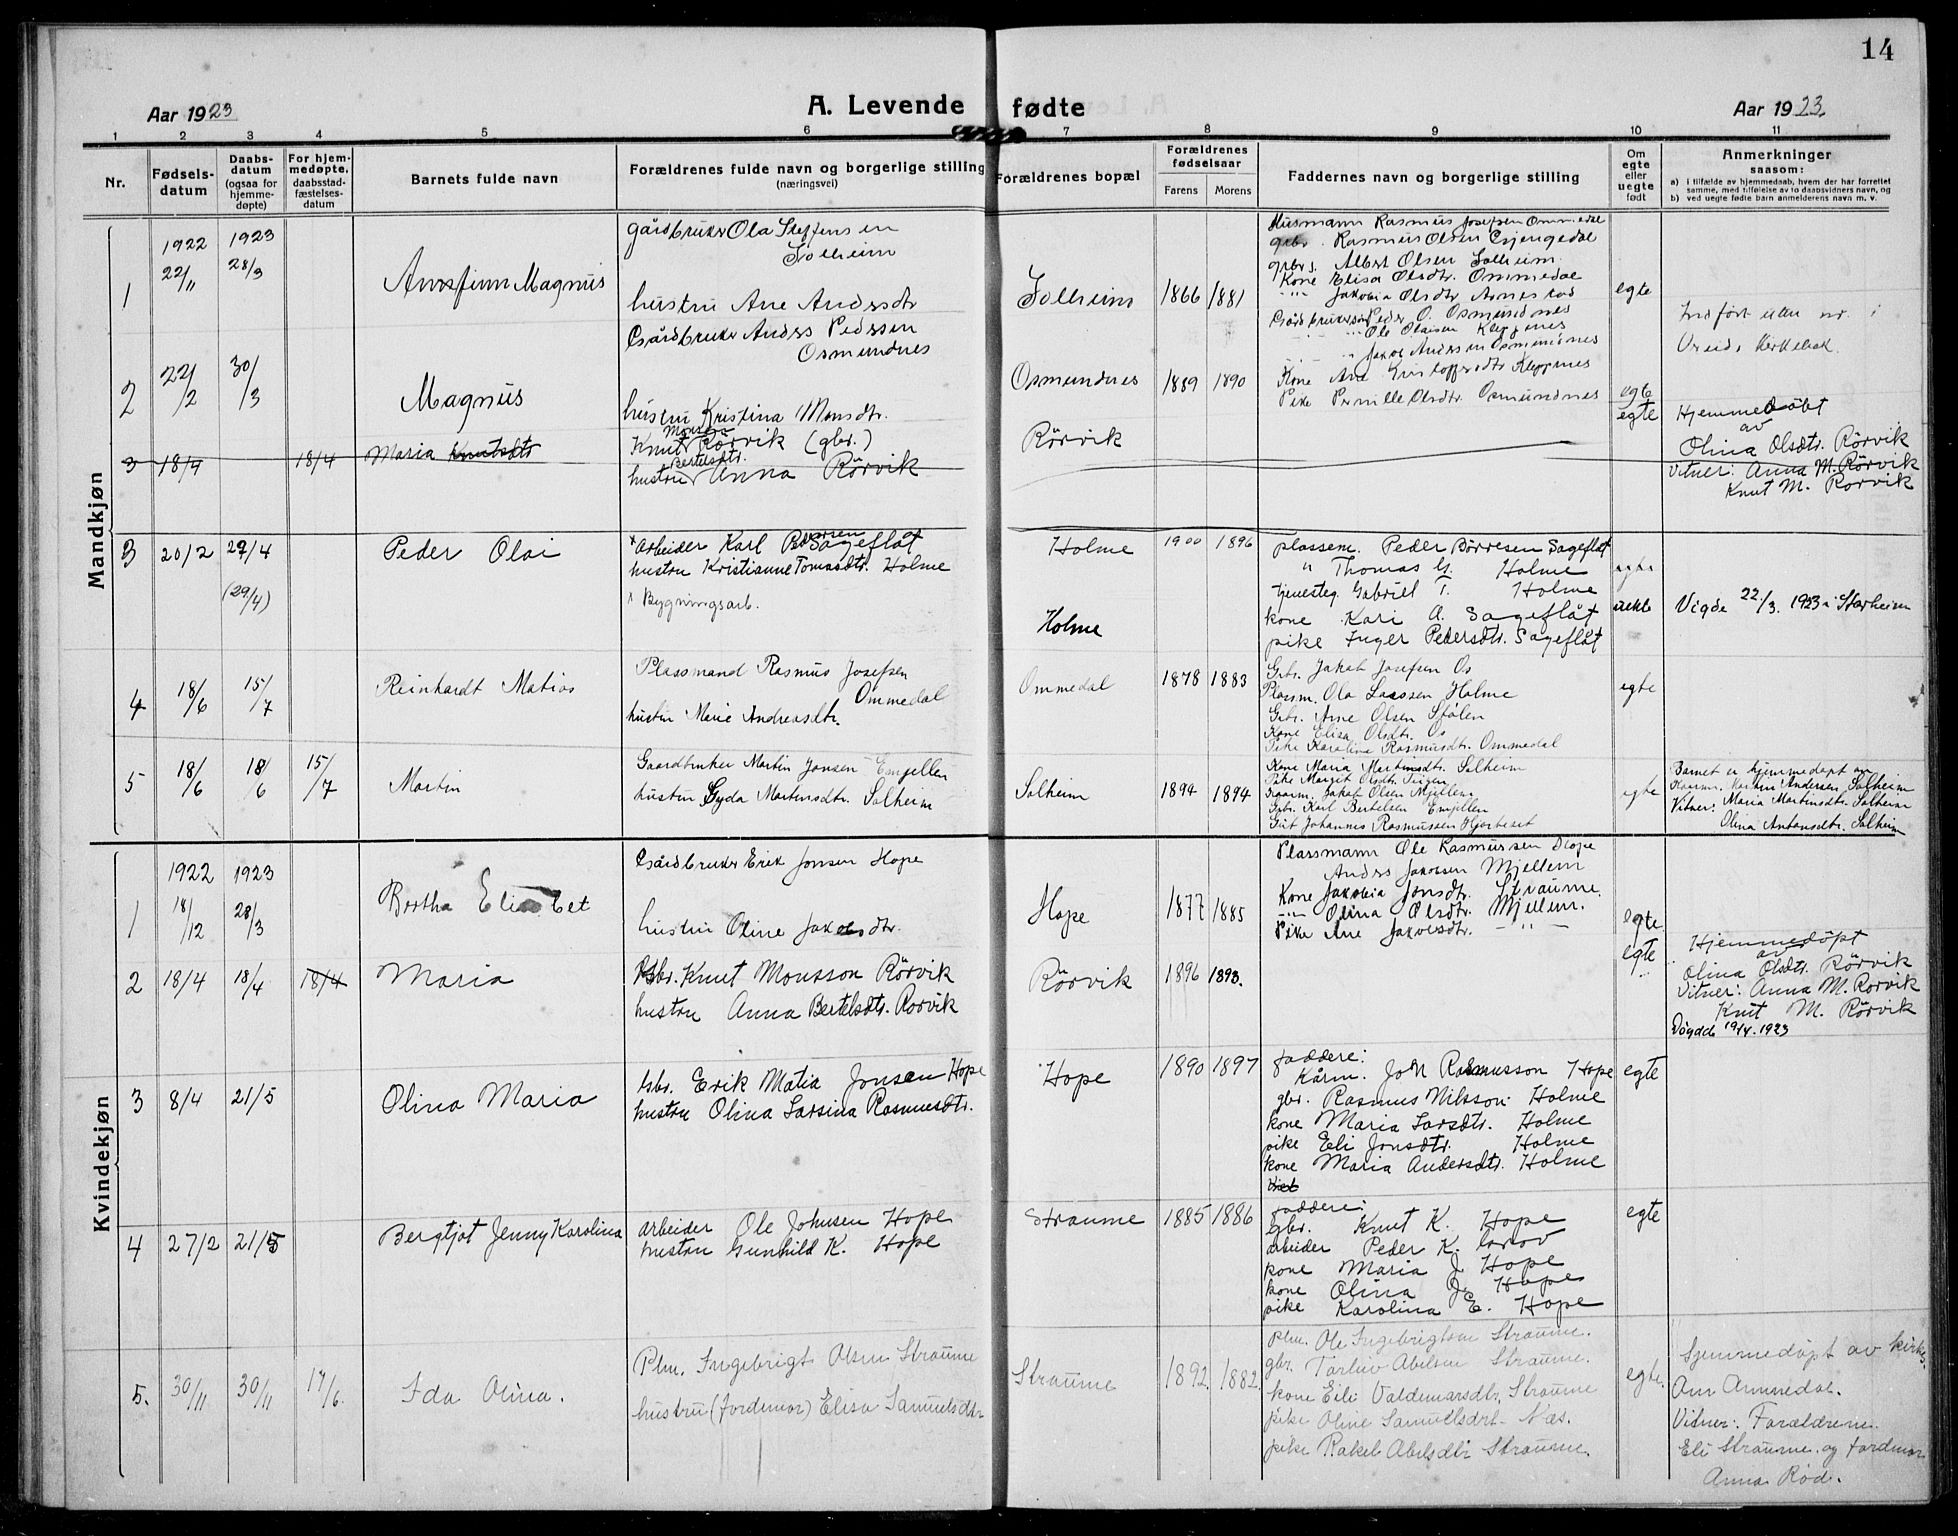 14
Aar 1923
A. Levende fødte
Aar 1923.
1 2 3 4 5 6 7 8 9 10 11
Nr.
Fødsels-
datum
Daabs-
datum
(ogsaa for
hjemme-
døpte)
For hjem-
medøpte,
daabsstad-
fæstelses-
datum
Barnets fulde navn
Forældrenes fulde navn og borgerlige stilling
(næringsvei)
Forældrenes bopæl
Forældrenes
fødselsaar
Farens Morens
Faddernes navn og borgerlige stilling
Om
egte
eller
uegte
født
Anmerkninger
saasom:
a) i tilfælde av hjemmedaab, hvem der har forrettet
samme, med tilføielse av to daabsvidners navn, og
b) ved uegte fødte barn anmelderens navn m. v.
Mandkjøn
1
1922
22/11
1923
28/3
Arnsfinn Magnus
gårdbruker Ola Steffensen
Solheim
hustru Ane Andersdtr
Solheim
1866 1881
Husmann Rasmus Josefsen Ommedal
grbr. Rasmus Olsen Gjengedal
grbrs. Albert Olsen Solheim
Kone Elisa Olsdtr. Ommedal
" Jakobia Olsdtr Arnestad
egte
2
22/2
30/3
Magnus
Gårdbruker Anders Pedersen
Osmundnes
hustru Kristina Monsdtr.
Osmundnes
1889 1890
Gårdbrukersøn Peder O. Osmundnes
Ole Olaisen Kleppenes
Jakob Andersen Osmundnes
Kone Ane Kristoffersdtr Kleppenes
Pike Pernille Olsdtr. Osmundnes
egte
Indført uten nr. i
kirkebok.
3 18/4 18/4
Maria Knutsdtr
Knut Monsson Rörvik (gbr.)
hustru Anna Bertelsdtr. Rörvik
Rörvik
egte
Hjemmedöbt
av
Olina Olsdtr. Rörvik
Vitner: Anna M. Rörvik
Knut M. Rörvik
3 20/2 29/4
(29/4)
Peder Olai
x Arbeider Karl Pedersen Sageflåt
hustru Kristianne Tomasdtr. Holme
x Bygningsarb.
Holme
Holme
1900 1896
plassem. Peder Börresen Sageflåt
" Thomas G. Holme
tjenesteg. Gabriel T. Holme
kone Kari A. Sageflåt
pike Inger Pedersdtr. Sageflåt
egte
Vigde 22/3. 1923 i Starheim
4 18/6 15/7
Reinhardt Matias
Plassmand Rasmus Josefsen
Ommedal
hustru Marie Andreasdtr.
Ommedal
1878 1883
Grbr. Jakob Josefsen Os
Plassm. Ola Larssen Holme
Grbr. Arne Olsen Stölen
Kone Elisa Olsdtr. Os
Pike Karolina Rasmusdtr. Ommedal
egte
5 18/6 18/6 15/7
Martin
Gaardbruker Martin Jonsen Emjellen
hustru Gyda Martinsdtr. Solheim
Solheim
1894 1894
Kone Maria Martinsdtr. Solheim
Pike Margit Olsdtr. Teigen
Kaarm. Jakob Olsen Mjellem
Grbr. Karl Bertelsen Emjellen
Gut Johannes Rasmussen Hjorteset
egte
Barnet er hjemmedøpt av
Kaarm. Martin Andersen Solheim
Vitner: Maria Martinsdtr. Solheim
Olina Antonsdtr. Solheim
Kvindekjøn
1
1922
18/12
1923
28/3
Bertha Elisabet
Gårdbruker Erik Jonsen Hope
hustru Oline Jakobsdtr.
Hope
1877 1885
Plassmann Ole Rasmussen Hope
Anders Jakobsen Mjellem
Kone Jakobia Jonsdtr. Straume.
" Olina Olsdtr. Mjellem.
Pike Ane Jakobsdtr. - " -
egte.
2 18/4 18/4 18/4
Maria
Gbr. Knut Monsson Rörvik
hustru Anna Bertelsdtr. Rorvik
Rörvik
1896 1893.
egte
Hjemmedöpt
av
Olina Olsdtr. Rörvik
Vitner: Anna M. Rorvik
Knut M. Rörvik
Döydde 19/4. 1923
3 8/4 21/5
Olina Maria
Gbr. Erik Matia Jonsen Hope
hustru Olina Larsina Rasmusdtr.
Hope
1890 1897
faddere:
Kårm. Joh Rasmusson Hope
gbr. Rasmus Nilsson Holme
kone Maria Larsdtr. Holme
pike Eli Jonsdtr. Holme
kone Maria Andersdtr. Holme
egte
4 27/2 21/5
Bergljot Jenny Karolina
arbeider Ole Johnsen Hope
hustru Gunhild K. Hope
Straume
1885 1886
faddere:
gbr. Knut K. Hope
arbeider Peder K.
kone Maria J. Hope
kone Olina J. Hope
pike Karolina E. Hope
egte
5. 30/11 30/11 17/6.
Ida Olina.
Plm. Ingebrigt Olsen Straume
hustru (Jordmor) Elisa Samuelsdtr
Straume
1892. 1882.
Plm. Ole Ingebrigtsen Straume.
gbr. Tarluv Abelsen Straume.
kone Eili Valdemarsdtr. Straume
pike Oline Samuelsdtr. Næs.
pike Rakel Abelsdtr Straume.
egte.
Hjemmedøpt av kirkes.
Am Ammedal.
Vitner: Forældrene
Eli Straume og Jordmor
Anna Rød.